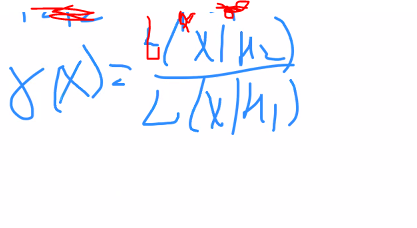 γ(x) = L(x|H₂) / L(x|H₁)